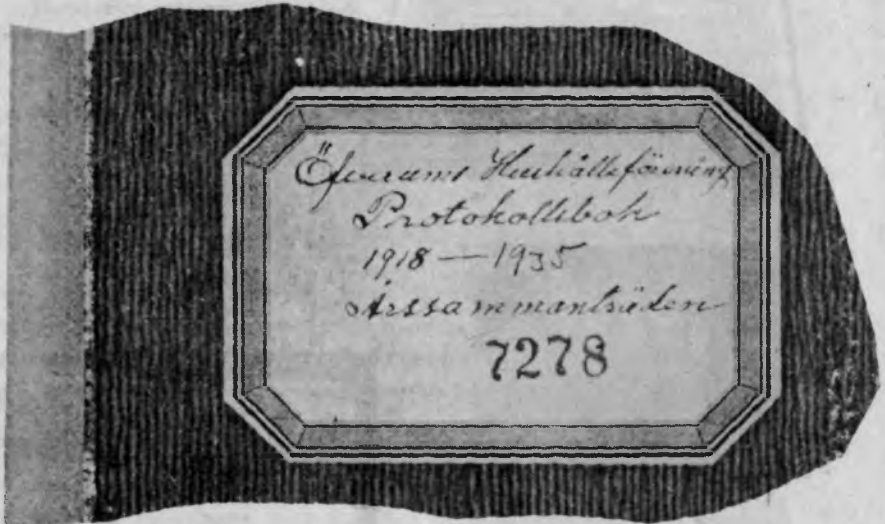 Öfverums Hushållsförening
Protokollsbok
1918 — 1935
Årssammanträden
7278